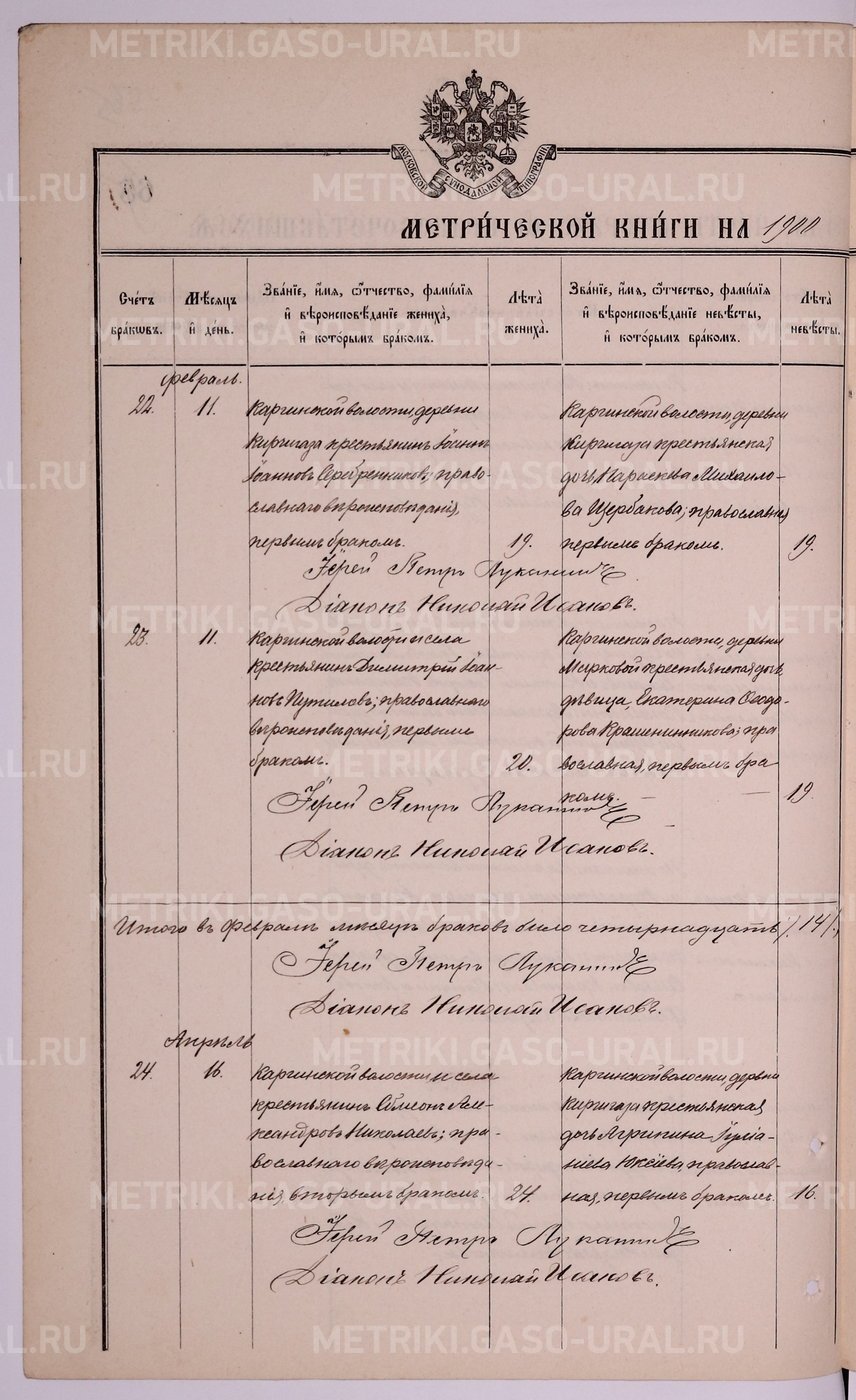 МОСКОВСКОЙ СѴНОДАЛЬНОЙ ТИПОГРАФІИ
МЕТРИ́ЧЕСКОЙ КНИ́ГИ НА 1900
Сче́тъ бра́кѡвъ.
Мѣ́сяцъ и҆ де́нь.
Зва́нїе, и҆́мя, ѻ҆́тчество, фами́лїя и҆ вѣроисповѣ́данїе жениха̀, и҆ кото́рымъ бра́комъ.
Лѣта̀ жениха̀.
Зва́нїе, и҆́мя, ѻ҆́тчество, фами́лїя и҆ вѣроисповѣ́данїе невѣ́сты, и҆ кото́рымъ бра́комъ.
Лѣта̀ невѣ́сты.
Февраль.
22. 11.
Каргинской волости, деревни
Киргишаза крестьянинъ Іоаннъ
Іоанновъ Серебренниковъ; право-
славнаго вѣроисповѣданія,
первымъ бракомъ. 19.
Каргинской волости, деревни
Киргишаза крестьянская
дочь Параскева Михаило-
ва Щербакова; православная,
первымъ бракомъ. 19.
Іерей Петръ Луканинъ
Діаконъ Николай Исаковъ.
23. 11.
Каргинской волости и села
крестьянинъ Димитрій Іоан-
новъ Путиловъ; православнаго
вѣроисповѣданія, первымъ
бракомъ. 20.
Каргинской волости, деревни
Марковой крестьянская дочь
дѣвица, Екатерина Ѳеодо-
рова Крашенинникова; пра
вославная, первымъ бра
комъ. — — 19.
Іерей Петръ Луканинъ
Діаконъ Николай Исаковъ.
Итого въ Февралѣ мѣсяцѣ браковъ было четырнадцать /.14/.
Іерей Петръ Луканинъ
Діаконъ Николай Исаковъ.
Апрѣль
24. 16.
Каргинской волости и села
крестьянинъ Симеонъ Але-
ксандровъ Николаевъ; пра-
вославнаго вѣроисповѣда-
нія, вторымъ бракомъ. 24.
Каргинской волости, деревни
Киргишаза крестьянская
дочь Агрипина Іуліа-
ніева, православ-
ная, первымъ бракомъ. 16.
Іерей Петръ Луканинъ
Діаконъ Николай Исаковъ.
METRIKI.GASO-URAL.RU